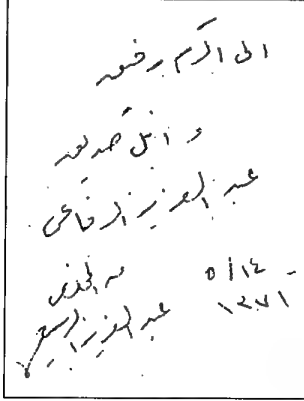 الى اكرم رفيق
و انبل صديق
عبد العزيز الرفاعى
من المخلص
عبد العزيز الربيع
١٤/٥
١٣٧١